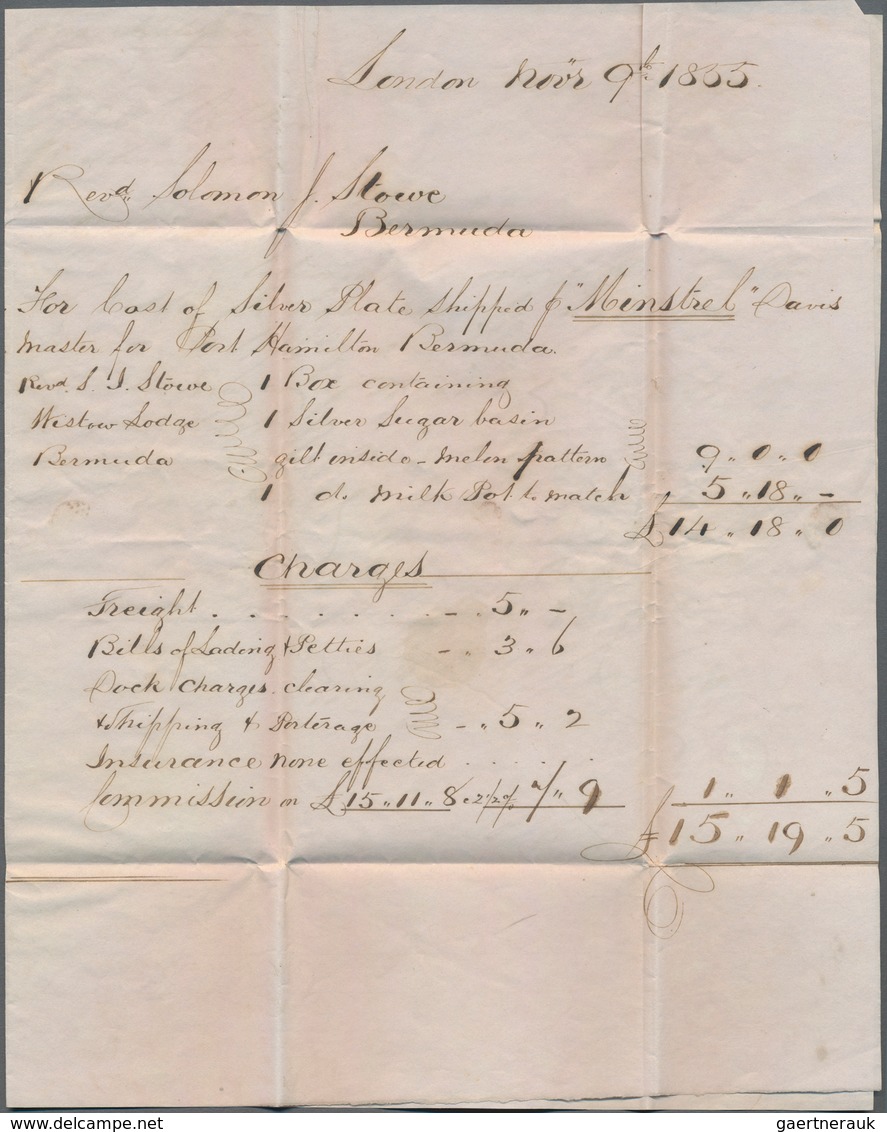 London Novr 9th 1855.
Revd. Solomon J. Stowe
Bermuda
For Cost of Silver Plate shipped p "Minstrel" Davis
master for Port Hamilton Bermuda.
Revd. S. J. Stowe 1 Box containing
Westow Lodge 1 Silver Sugar basin
Bermuda gilt inside - melon pattern 9 " 0 " 0
1 do. Milk Pot to match 5 " 18 " -
£ 14 " 18 " 0
Charges
Freight . . . . . . . - . 5 " -
Bills of Lading & Petties - " 3 " 6
Dock charges clearing
& Shipping & Porterage - " 5 " 2
Insurance none effected . . . . .
Commission on £15 " 11 " 8 @ 2 1/2 % 7 " 9 1 " 1 " 5
£ 15 " 19 " 5
gaertnerauk